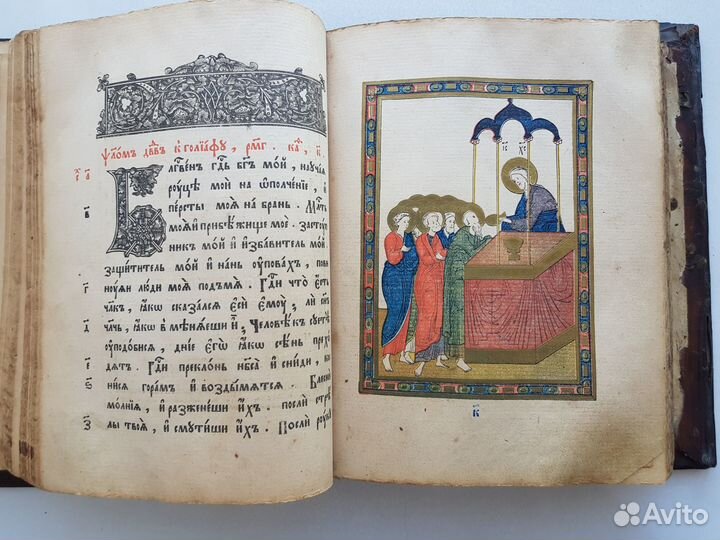 Ѱало́мъ дв҃дв к҆ голїа́ѳꙋ, рмг҃. каѳ, к҃.
а҃ Бл҃гвенъ гд҇ь бг҃ъ мой, наꙋчаѧ
рꙋцѣ мой на ѡполченїе, и
в҃ персты моѧ на брань. Млт҇ь
моѧ и прибѣжище мое. застꙋп
никъ мой и избавитель мой.
защитителъ мой и нань ѹповахъ, пови
г҃ нꙋѧи люди моѧ подъмѧ. Гд҇и что е҇ть
чл҃къ, ꙗкѡ сказалсѧ еси емꙋ, ли сн҃ъ
д҃ чл҃чь, ꙗкѡ вмѣнѧеши и. Человѣкъ сꙋетѣ
ѹподобисѧ, дн҃іе егѡ ꙗкѡ сѣнь прехо
е҃ дѧтъ. Гд҇и преклонь нб҃са и сниди, кос
ѕ҃ нисѧ горамъ и воздымѧтсѧ. Блесни
молнїѧ, и разженеши ихъ. посли стрѣ
з҃ лы твоѧ, и смꙋтиши ихъ. Посли рꙋкꙋ
і҃с х҃с
к҃
Avito